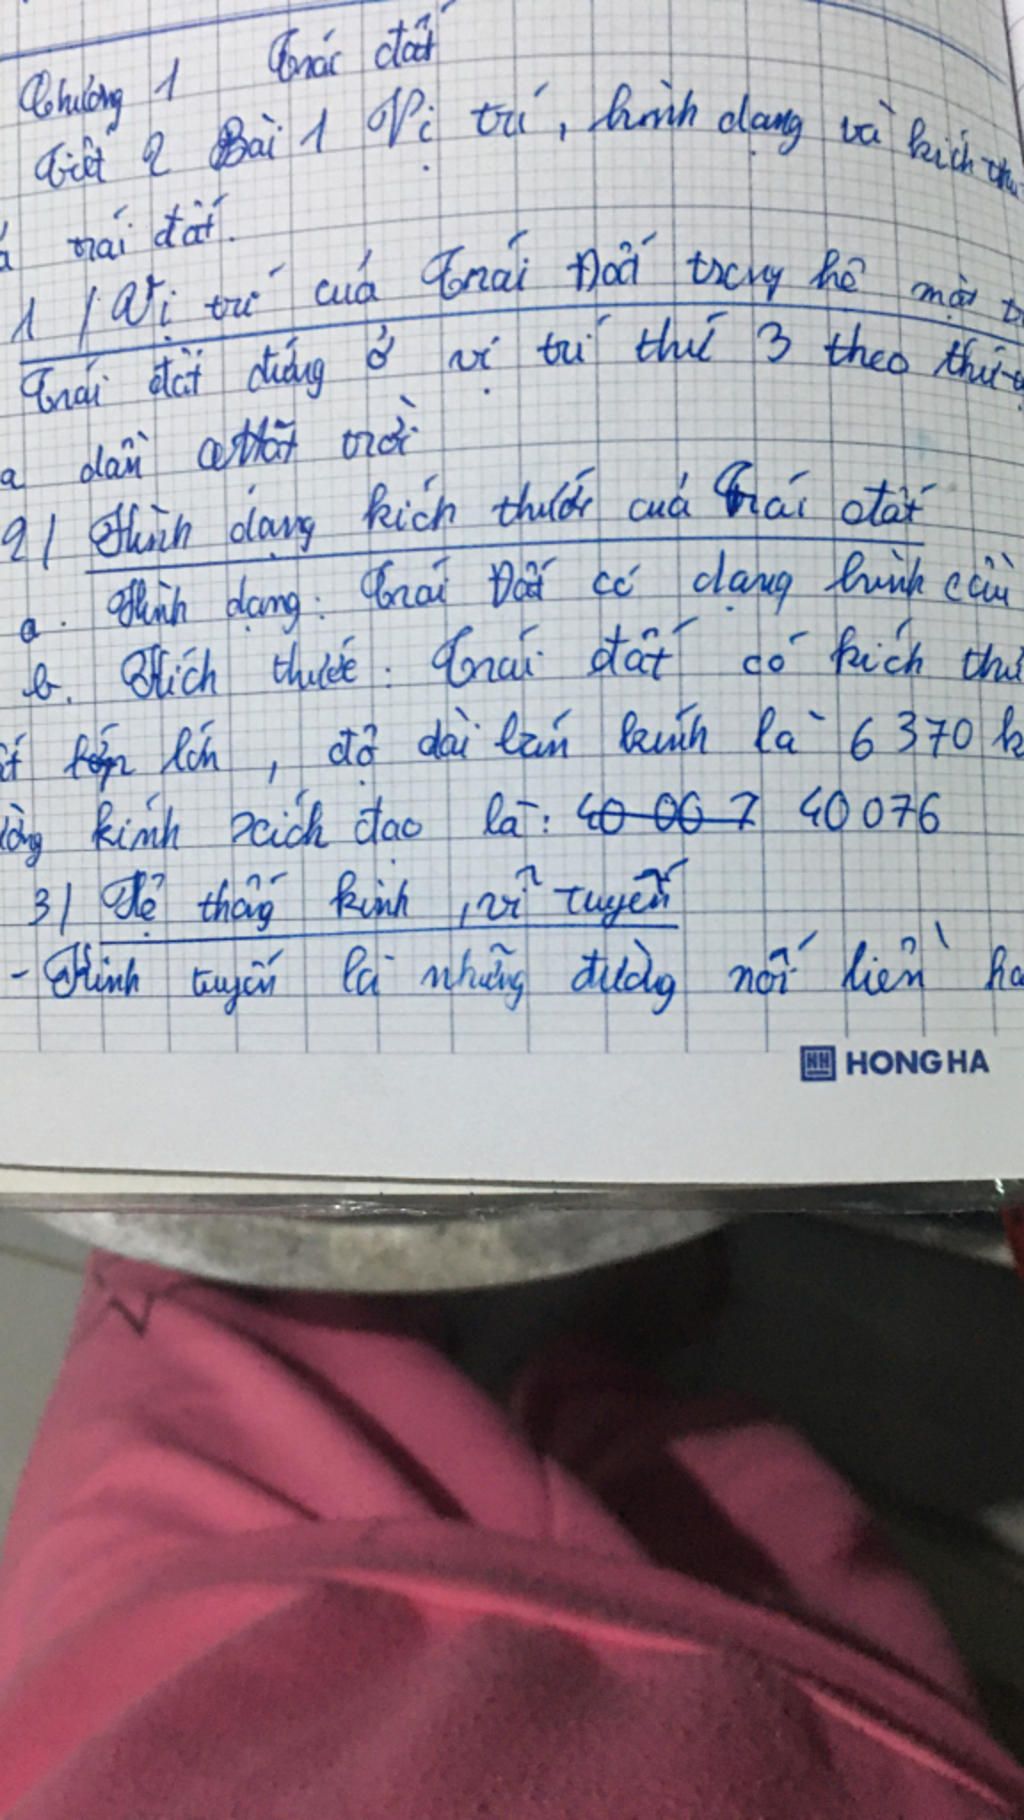 Chương 1 Trái đất
Tiết 2 Bài 1 Vị trí, hình dạng và kích thư
trái đất.
1 / Vị trí của Trái Đất trong hệ mặt tr
Trái đất đứng ở vị trí thứ 3 theo thứ
a dần Mặt trời
2/ Hình dạng kích thước của Trái đất
a. Hình dạng: Trái Đất có dạng hình cầu
b. Kích thước: Trái đất có kích thư
lớn, độ dài bán kính là 6 370 k
kính xích đạo là: 40 00 7 40 076
3/ Hệ thống kinh, vĩ tuyến
- Kinh tuyến là những đường nối liền ha
HONG HA